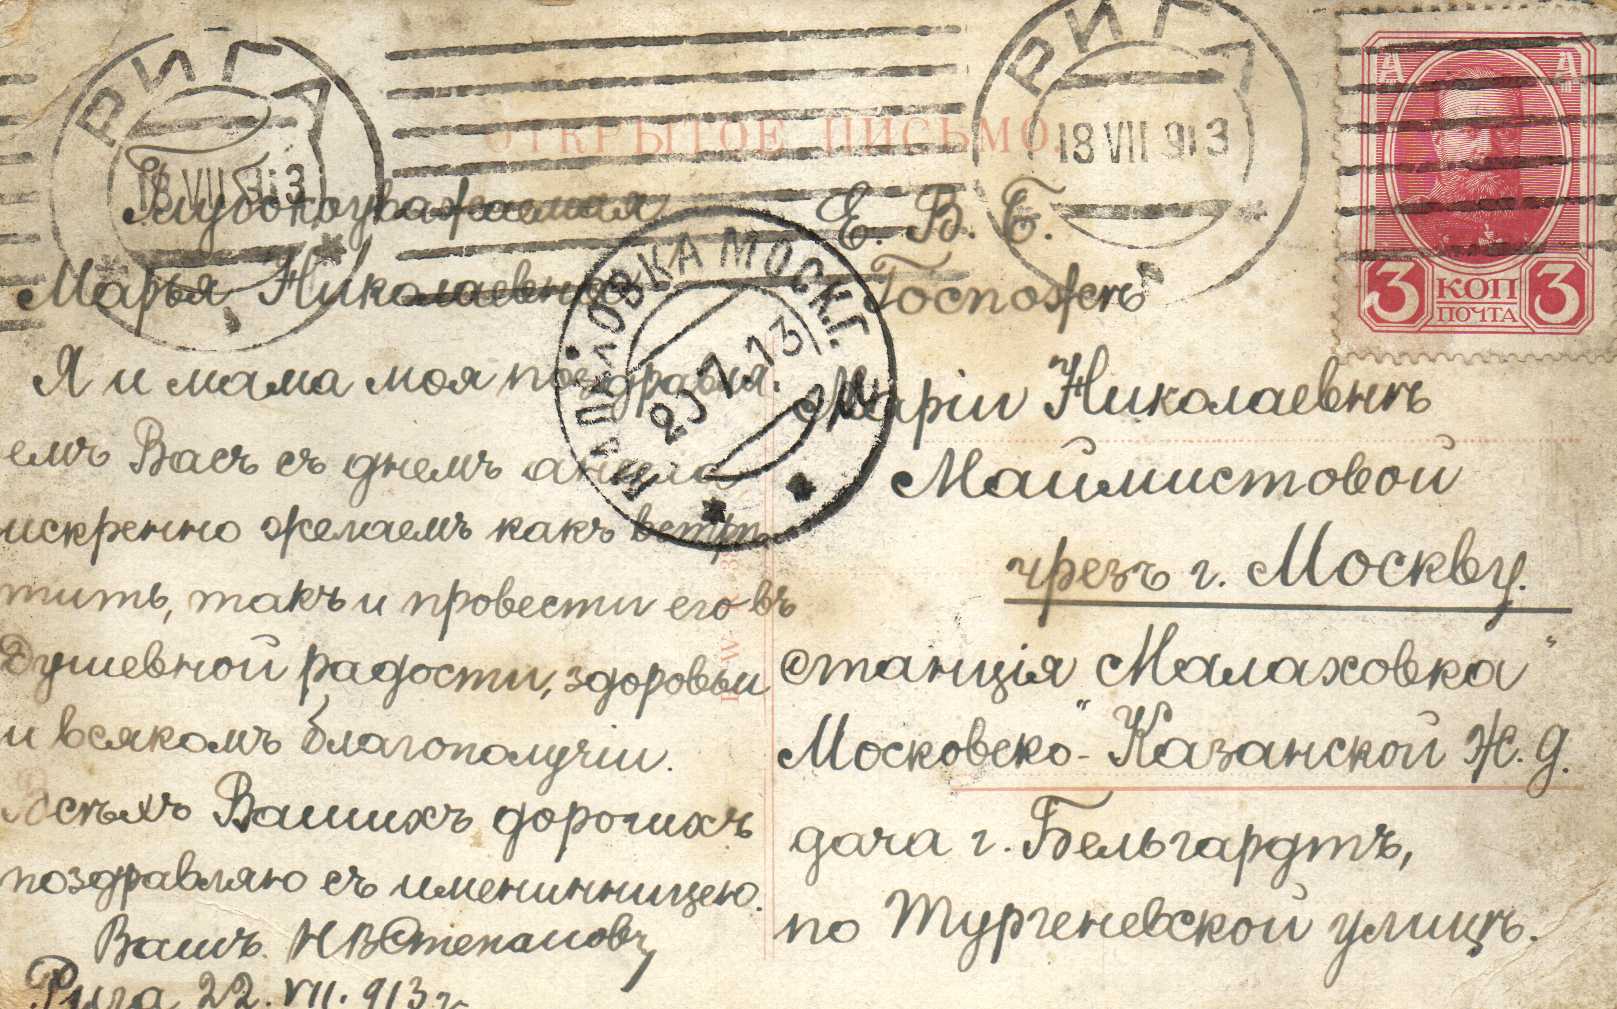 РИГА
18 VII 913
РИГА
18 VII 913
ОТКРЫТОЕ ПИСЬМО.
3 КОП 3
ПОЧТА
МОСК.Г.
7.13
Глубокоуважаемая
Марья Николаевна
Я и мама моя поздравля-
емъ Васъ съ днемъ ангела
искренно желаемъ какъ встрѣ-
тить, такъ и провести его въ
душевной радости, здоровьи
и всякомъ благополучіи.
Всѣхъ Вашихъ дорогихъ
поздравляю съ именинницею.
Вашъ НВСтепановъ
Рига 22. VII. 913 г.
Е. В. Б.
Госпожѣ
Маріи Николаевнѣ
Маймистовой
чрезъ г. Москву.
станція „Малаховка“
Московско-Казанской Ж. д.
дача г. Бельгардтъ,
по Тургеневской улицѣ.